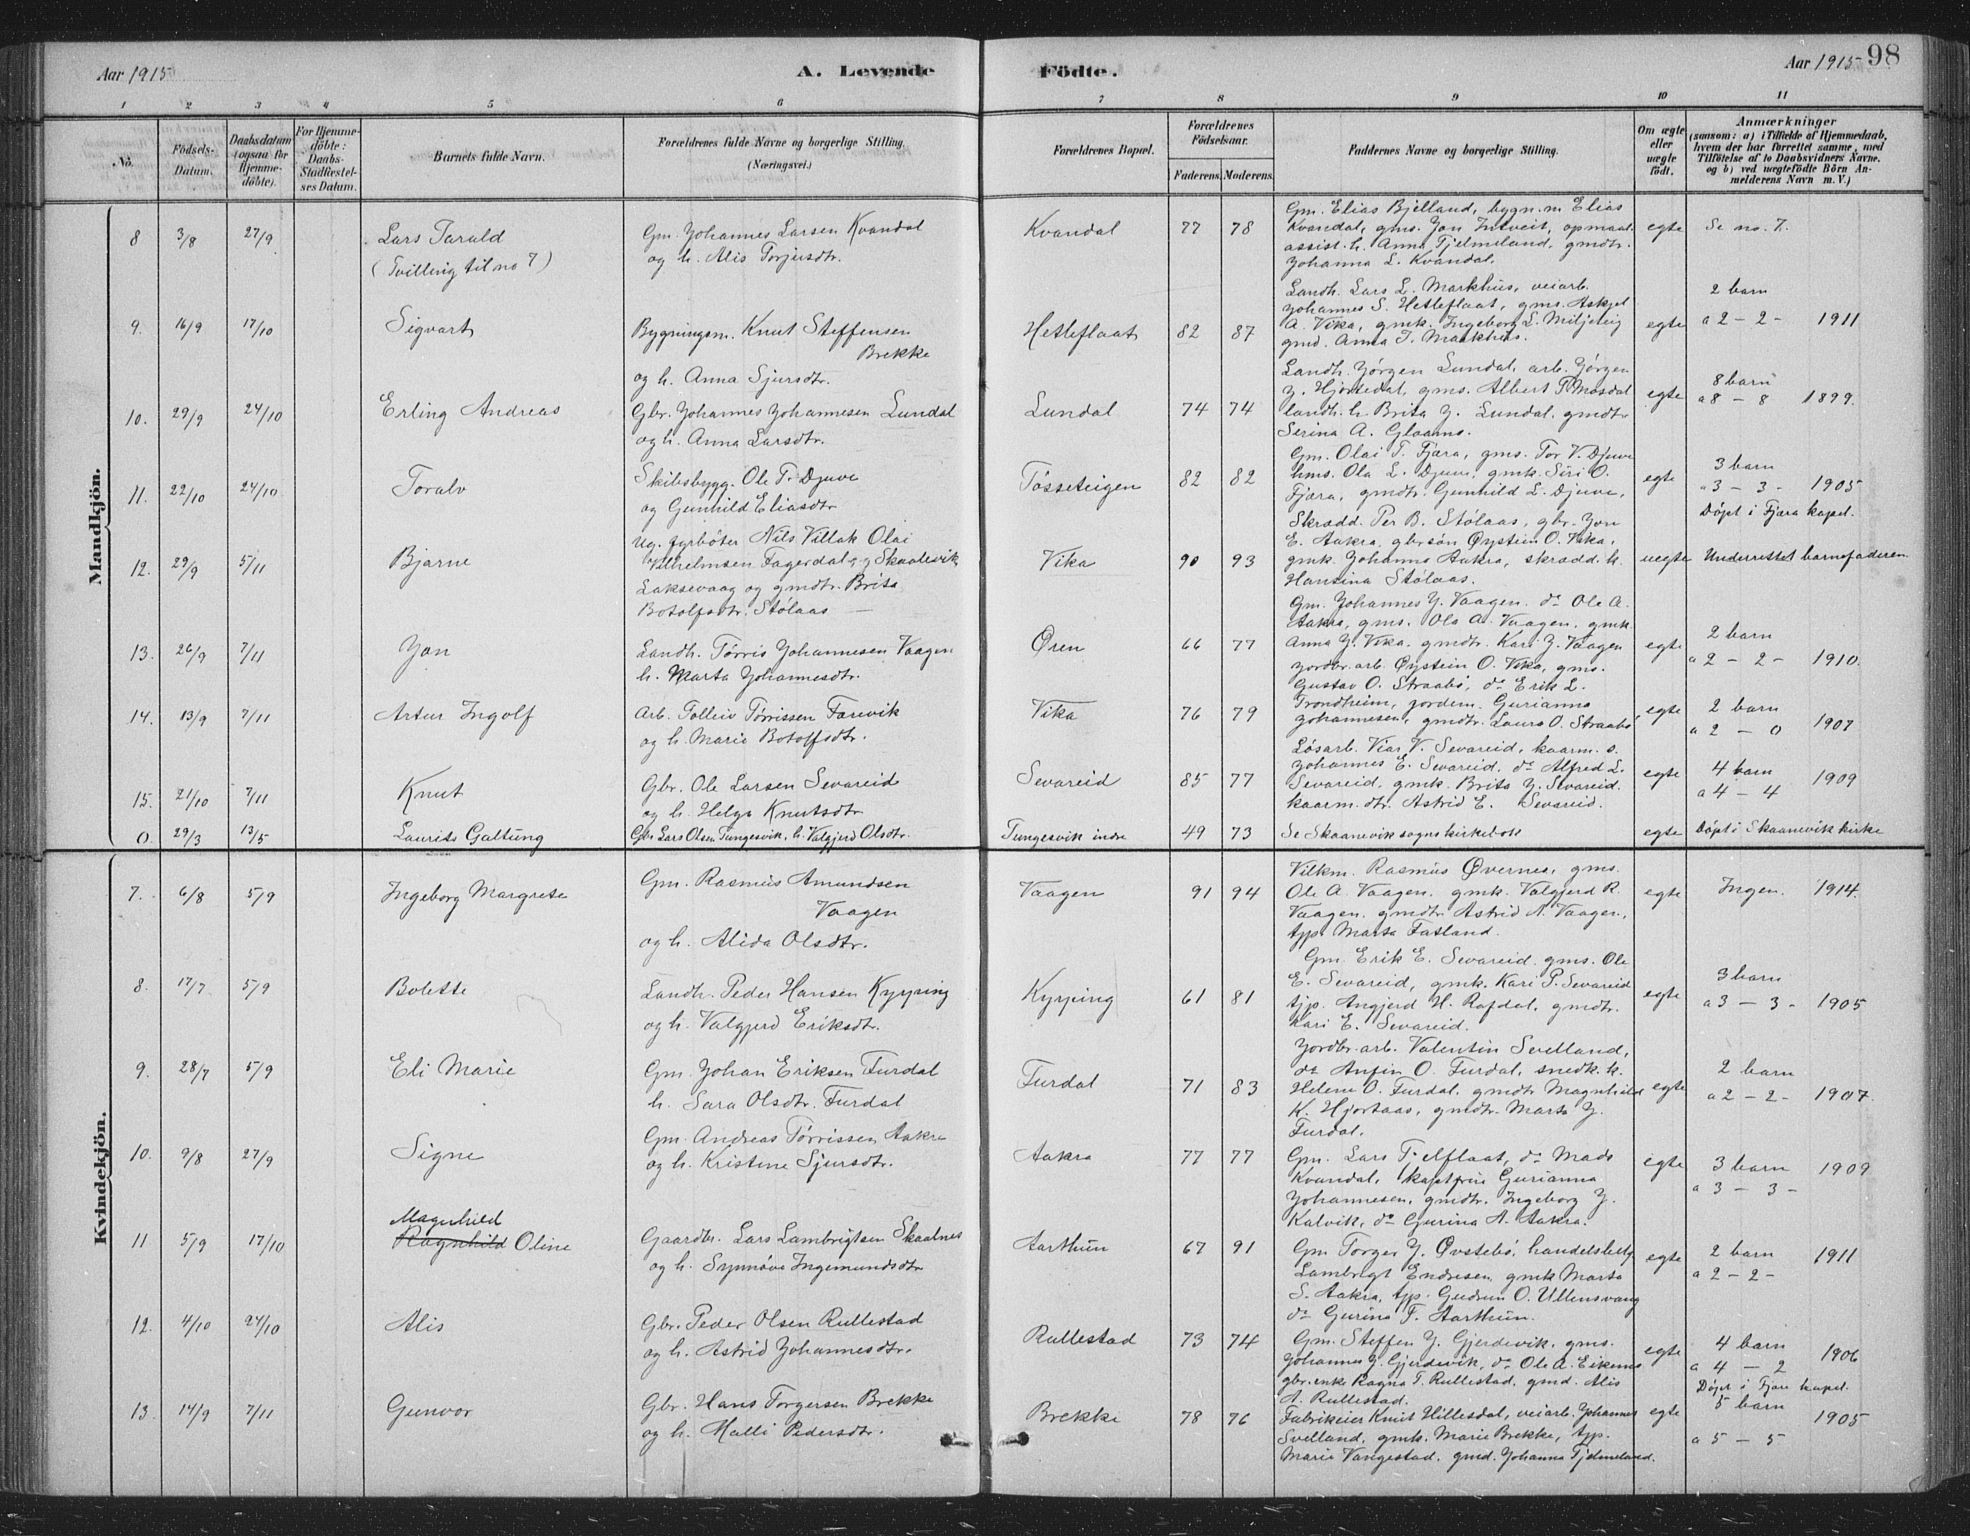 Aar 1915
A. Levende Födte.
Aar 1915 98
1 2 3 4 5 6 7 8 9 10 11
No.
Födsels-Datum.
Daabsdatum (ogsaa for Hjemmedöbte).
For Hjemmedöbte: Daabs-Stadfæstelses Datum.
Barnets fulde Navn.
Forældrenes fulde Navne og borgerlige Stilling. (Næringsvei.)
Forældrenes Bopæl.
Forældrenes Födselsaar.
Faderens. Moderens.
Faddernes Navne og borgerlige Stilling.
Om ægte eller uægte födt.
Anmærkninger
(saasom: a) i Tilfælde af Hjemmedaab, hvem der har forrettet samme, med Tilföielse af to Daabsvidners Navne. og b) ved uægtefödte Börn Anmelderens Navn m. V.)
Mandkjön.
8 3/8 27/9 Lars Tarald (Tvilling til no 7)
Gm. Johannes Larsen Kvandal
og h. Alis Torjusdtr.
Kvandal 77 78
Gm. Elias Bjelland, bygn.m Elias
Kvandal, gms. Jon Intveit, opmaal.
assist. h. Anna Tjelmeland, gmdtr.
Johanna L. Kvandal.
egte Se no. 7.
9. 16/9 17/10 Sigvart
Bygningsm. Knut Steffensen
Brekke
og h. Anna Sjursdtr.
Hetleflaat 82 87
Landh. Lars L. Markhus, veiarb.
Johannes S. Hetleflaat, gms. Askjel
A. Vika, gmk. Ingeborg L. Miljeteig
gmd. Anna J. Markhus.
egte 2 barn
a 2 - 2 - 1911
10. 29/9 24/10 Erling Andreas
Gbr. Johannes Johannesen Lundal
og h. Anna Larsdtr.
Lundal 74 74
Landh. Jørgen Lundal, arb. Jørgen
J. Hjortedal, gms. Albert T. Mosdal
landh. h. Brita J. Lundal, gmdtr
Serina A.
egte 8 barn
a 8 - 8 1899.
11. 22/10 24/10 Toralv
Skibsbygg. Ole T. Djuve
og Gunhild Eliasdtr
Tøsseteigen 82 82
Gm. Olai T. Fjæra, gms. Tor V. Djuve
hms. Ola L. Djuve, gmk. Siri O.
Fjæra, gmdtr. Gunhild L. Djuve,
egte 3 barn
a 3 - 3 - 1905
Døpt i Fjæra kapel.
12. 29/9 5/11 Bjarne
Ug. fyrbøter Nils Villak Olai
Vilhelmsen Fagerdal, Skaalevik
Laksevaag og gmdtr. Brita
Botolfsdtr. Stølaas —
Vika 90 93
Skrædd. Per B. Stølaas, gbr. Jon
E. Aakra, gbrsøn Øystein O. Vika,
gmk. Johanna Aakra, skrædd. h.
Hansina Stølaas.
uegte Underrettet barnefaderen
13. 26/9 7/11 Jon
Landh. Tørris Johannesen Vaagen
h. Marta Johannesdtr.
Øren 66 77
Gm. Johannes J. Vaagen. do Ole A.
Aakra, gms. Ola A. Vaagen. gmk
Anna J. Vika. gmdtr. Kari J. Vaagen
egte 2 barn
a 2 - 2 - 1910.
14. 13/9 7/11 Artur Ingolf
Arb. Tolleiv Tørrissen Farevik
og h. Marie Botolfsdtr.
Vika 76 79
Jordbr. arb. Øystein O. Vika, gms.
Gustav O. Straabø, do Erik L.
Trondheim, jordem. Gurianna
Johannesen, gmdtr. Laura O. Straabø
egte 2 barn
a 2 - 0 1907
15. 21/10 7/11 Knut
Gbr. Ole Larsen Sevareid
og h. Helga Knutsdtr
Sevareid 85 77
Løsarb. Viar V. Sevareid, kaarm. s.
Johannes E. Sevareid, do Alfred L.
Sevareid, gmk. Brita J. Sevareid.
kaarm. dtr. Astrid E. Sevareid.
egte 4 barn
a 4 - 4 1909
0. 29/3 13/5 Laurits Galtung
Gbr. Lars Olsen Tungesvik, h. Valgjerd Olsdtr.
Tungesvik indre 49 73
Se Skaanevik sogns kirkebok
egte Døpt i Skaanevik kirke
Kvindekjön.
7. 6/8 5/9 Ingeborg Margrete
Gm. Rasmus Amundsen
Vaagen
og h. Alida Olsdtr.
Vaagen 91 94
Vilkm. Rasmus Øvernes, gms.
Ole A. Vaagen. gmk. Valgjerd R.
Vaagen. gmdtr. Astrid A. Vaagen,
tjp. Marta Fatland.
egte Ingen. 1914.
8. 17/7 5/9 Bolette
Landh. Peder Hansen Kyrping
og h. Valgjerd Eriksdtr.
Kyrping 61 81
Gm. Erik E. Sevareid. gms. Ole
E. Sevareid, gmk. Kari P. Sevareid
tjp. Angjerd H. Rafdal, gmdtr.
Kari E. Sevareid.
egte 3 barn
a 3 - 3 - 1905
9. 28/7 5/9 Eli Marie
Gm. Johan Eriksen Furdal
h. Sara Olsdtr. Furdal
Furdal 71 83
Jordbr. arb. Valentin Svelland,
do Anfin O. Furdal, snedk. h.
Helene O. Furdal, gmdtr Magnhild
K. Hjortaas, gmdtr. Marta J.
Furdal.
egte 2 barn
a 2 - 2 - 1907.
10. 9/8 27/9 Signe
Gm. Andreas Tørrissen Aakra
og h. Kristine Sjursdtr.
Aakra 77 77
Gm. Lars Tjelflaat, do Mads
Kvandal, kaptfrue Gurianna
Johannesen, gmdtr. Ingeborg J.
Kalvik, do Gurina A. Aakra.
egte 3 barn
a 3 - 3 - 1909
11 5/9 17/10 Magnhild
Ragnhild Oline
Gaardbr. Lars Lambrigtsen Skaalnes
og h. Synnøve Ingemundsdtr
Aarthun 67 91
Gm Torger J. Øvstebø, handelsbetj.
Lambrigt Endresen, gmk Marta
S. Aakra, tjp. Gudrun O. Ullensvang
do Gurina T. Aarthun.
egte 2 barn
a 2 - 2 - 1911
12. 4/10 24/10 Alis
Gbr. Peder Olsen Rullestad
og h. Astrid Johannesdtr.
Rullestad 73 74
Gm. Steffen J. Gjerdevik, gms.
Johannes J. Gjerdevik, do Ole A. Eikemo
gbr. enke Ragna T. Rullestad, gmd. Alis
A. Rullestad.
egte 4 barn
a 4 - 2 1906
Døpt i Fjæra kapel.
13. 14/9 7/11 Gunvor
Gbr. Hans Torgersen Brekke
og h. Malli Pedersdtr.
Brekke 78 76
Fabrikeier Knut Hillesdal, veiarb. Johannes
Svelland, gmk. Marie Brekke, tjp.
Marie Vangestad. gmd. Johanna Tjelmeland.
egte 5 barn
a 5 - 5 1905